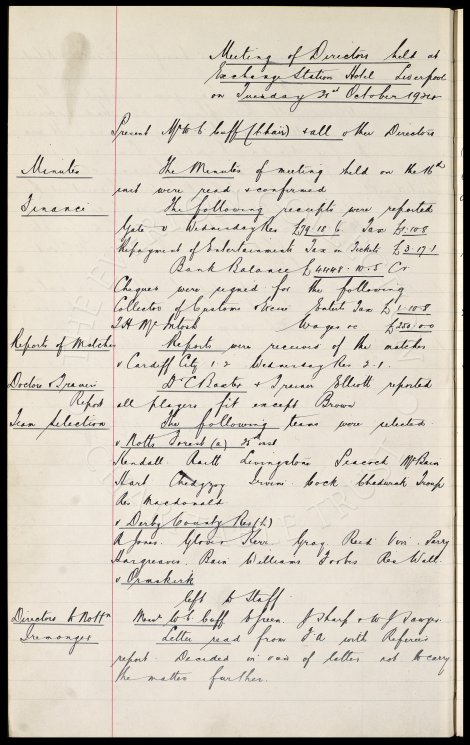 Meeting of Directors held at
Exchange Station Hotel Liverpool
on Tuesday 21st October 1924
Present Mr W C Cuff (Chair) & all other Directors
Minutes
The Minutes of meeting held on the 16th
inst were read & confirmed
Finance
The following receipts were reported
Gate v Wednesday Res £79.18.6 Tax £1.10.8
Repayment of Entertainments Tax on Tickets £3.17.1
Bank Balance £4448.10.5 Cr
Cheques were signed for the following
Collector of Customs & Excise Enterts Tax £1.10.8
T. H. McIntosh Wages &c £250.0.0
Reports of Matches
Reports were received of the matches
v Cardiff City 1-2 Wednesday Res 2-1
Doctor & Trainers
Report
Dr C Baxter & Trainer Elliott reported
all players fit except Brown
Team Selection
The following teams were selected
v Notts Forest (a) 25th inst
Kendall Raitt Livingstone Peacock McBain
Hart Chedgzoy Irvine Cock Chadwick Troup
Res Macdonald
v Derby County Res (h)
R Jones Glover Kerr Gray Reid Parry
Hargreaves Bain Williams Forbes Res Wall
v Ormskirk
Left to Staff
Directors to Nottm
Messrs W C Cuff B Green J Sharp & W J Sawyer
Iremonger
Letter read from F A with Referee's
report. Decided in view of latter not to carry
the matter further.